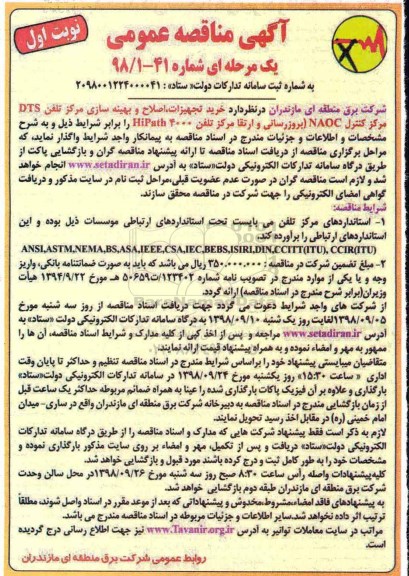 نوبت اول
آگهی مناقصه عمومی
یک مرحله ای شماره ۴۱-۹۸/۱
به شماره ثبت سامانه تدارکات دولت« ستاد» : ۲۰۹۸۰۰۱۲۲۴۰۰۰۰۴۱
شرکت برق منطقه ای مازندران درنظردارد خرید تجهیزات،اصلاح و بهینه سازی مرکز تلفن DTS
مرکز کنترل NAOC (بروزرسانی و ارتقا مرکز تلفن HiPath ۴۰۰۰) را برابر شرایط ذیل و به شرح
مشخصات و اطلاعات و جزئیات مندرج در اسناد مناقصه به پیمانکار واجد شرایط واگذار نماید، که
مراحل برگزاری مناقصه از دریافت اسناد مناقصه تا ارائه پیشنهاد مناقصه گران و بازگشایی پاکت از
طریق درگاه سامانه تدارکات الکترونیکی دولت«ستاد» به آدرس www.setadiran.ir انجام خواهد
شد و لازم است مناقصه گران در صورت عدم عضویت قبلی،مراحل ثبت نام در سایت مذکور و دریافت
گواهی امضای الکترونیکی را جهت شرکت در مناقصه محقق سازند.
شرایط مناقصه:
۱- استانداردهای مرکز تلفن می بایست تحت استانداردهای ارتباطی موسسات ذیل بوده و این
استانداردهای ارتباطی را برآورده کند.
ANSI,ASTM,NEMA,BS,ASA,IEEE,CSA,IEC,BEBS,ISIRI,DIN,CCITT(ITU), CCIR(ITU)
۲- مبلغ تضمین شرکت در مناقصه : ۳۵۰،۰۰۰،۰۰۰ ریال می باشد که باید به صورت ضمانتنامه بانکی، واریز
وجه و یا یکی از موارد مندرج در تصویب نامه شماره ۱۲۳۴۰۲/ت۵۰۶۵۹ ه مورخ ۱۳۹۴/۹/۲۲ هیات
وزیران(برابر شرح مندرج در اسناد مناقصه) ارائه گردد.
از شرکت های واجد شرایط دعوت می گردد جهت دریافت اسناد مناقصه از روز سه شنبه مورخ
۱۳۹۸/۰۹/۰۵لغایت روز یک شنبه ۱۳۹۸/۰۹/۱۰ به درگاه سامانه تدارکات الکترونیکی دولت «ستاد» به
آدرس www.setadiran.ir مراجعه و پس از اخذ کپی از کلیه مدارک و شرایط اسناد مناقصه، آن ها را
ممهور به مهر و امضاء نموده و به همراه پیشنهاد قیمت ارائه نمایند.
متقاضیان میبایستی پیشنهاد خود را براساس شرایط مندرج در اسناد مناقصه تنظیم و حداکثر تا پایان وقت
اداری « ساعت ۱۵:۳۰» روز یکشنبه مورخ ۱۳۹۸/۰۹/۲۴ در سامانه تدارکات الکترونیکی دولت«ستاد»
بارگذاری و علاوه بر آن فیزیک پاکات بارگذاری شده را عینا به همراه ضمائم مربوطه حداکثر یک ساعت قبل
از زمان بازگشایی مندرج در اسناد مناقصه به دبیرخانه شرکت برق منطقه ای مازندران واقع در ساری- میدان
امام خمینی (ره) در مقابل اخذ رسید تحویل نمایند.
لازم به ذکر است فقط پیشنهاد شرکت هایی که مدارک و اسناد مناقصه را از طریق درگاه سامانه تدارکات
الکترونیکی دولت«ستاد» دریافت و پس از تکمیل، مهر و امضاء بر روی سایت مذکور بارگذاری نموده و
مشخصات خود را به طور کامل ثبت و درج کرده باشند مورد قبول و بازگشایی خواهد شد.
کلیه پیشنهادات واصله رأس ساعت ۸:۳۰ صبح روز سه شنبه مورخ ۱۳۹۸/۰۹/۲۶در محل سالن وحدت
شرکت برق منطقه ای مازندران طبقه دوم بازگشایی خواهد شد.
به پیشنهادهای فاقد امضاء،مشروط،مخدوش و پیشنهاداتی که بعد از موعد مقرر در اسناد واصل شوند، مطلقاً
ترتیب اثر داده نخواهد شد.سایر اطلاعات و جزئیات مربوطه در اسناد مناقصه مندرج می باشد.
مراتب در سایت معاملات توانیر به آدرس www.Tavanir.org.ir نیز جهت اطلاع رسانی درج گردیده
است.
روابط عمومی شرکت برق منطقه ای مازندران